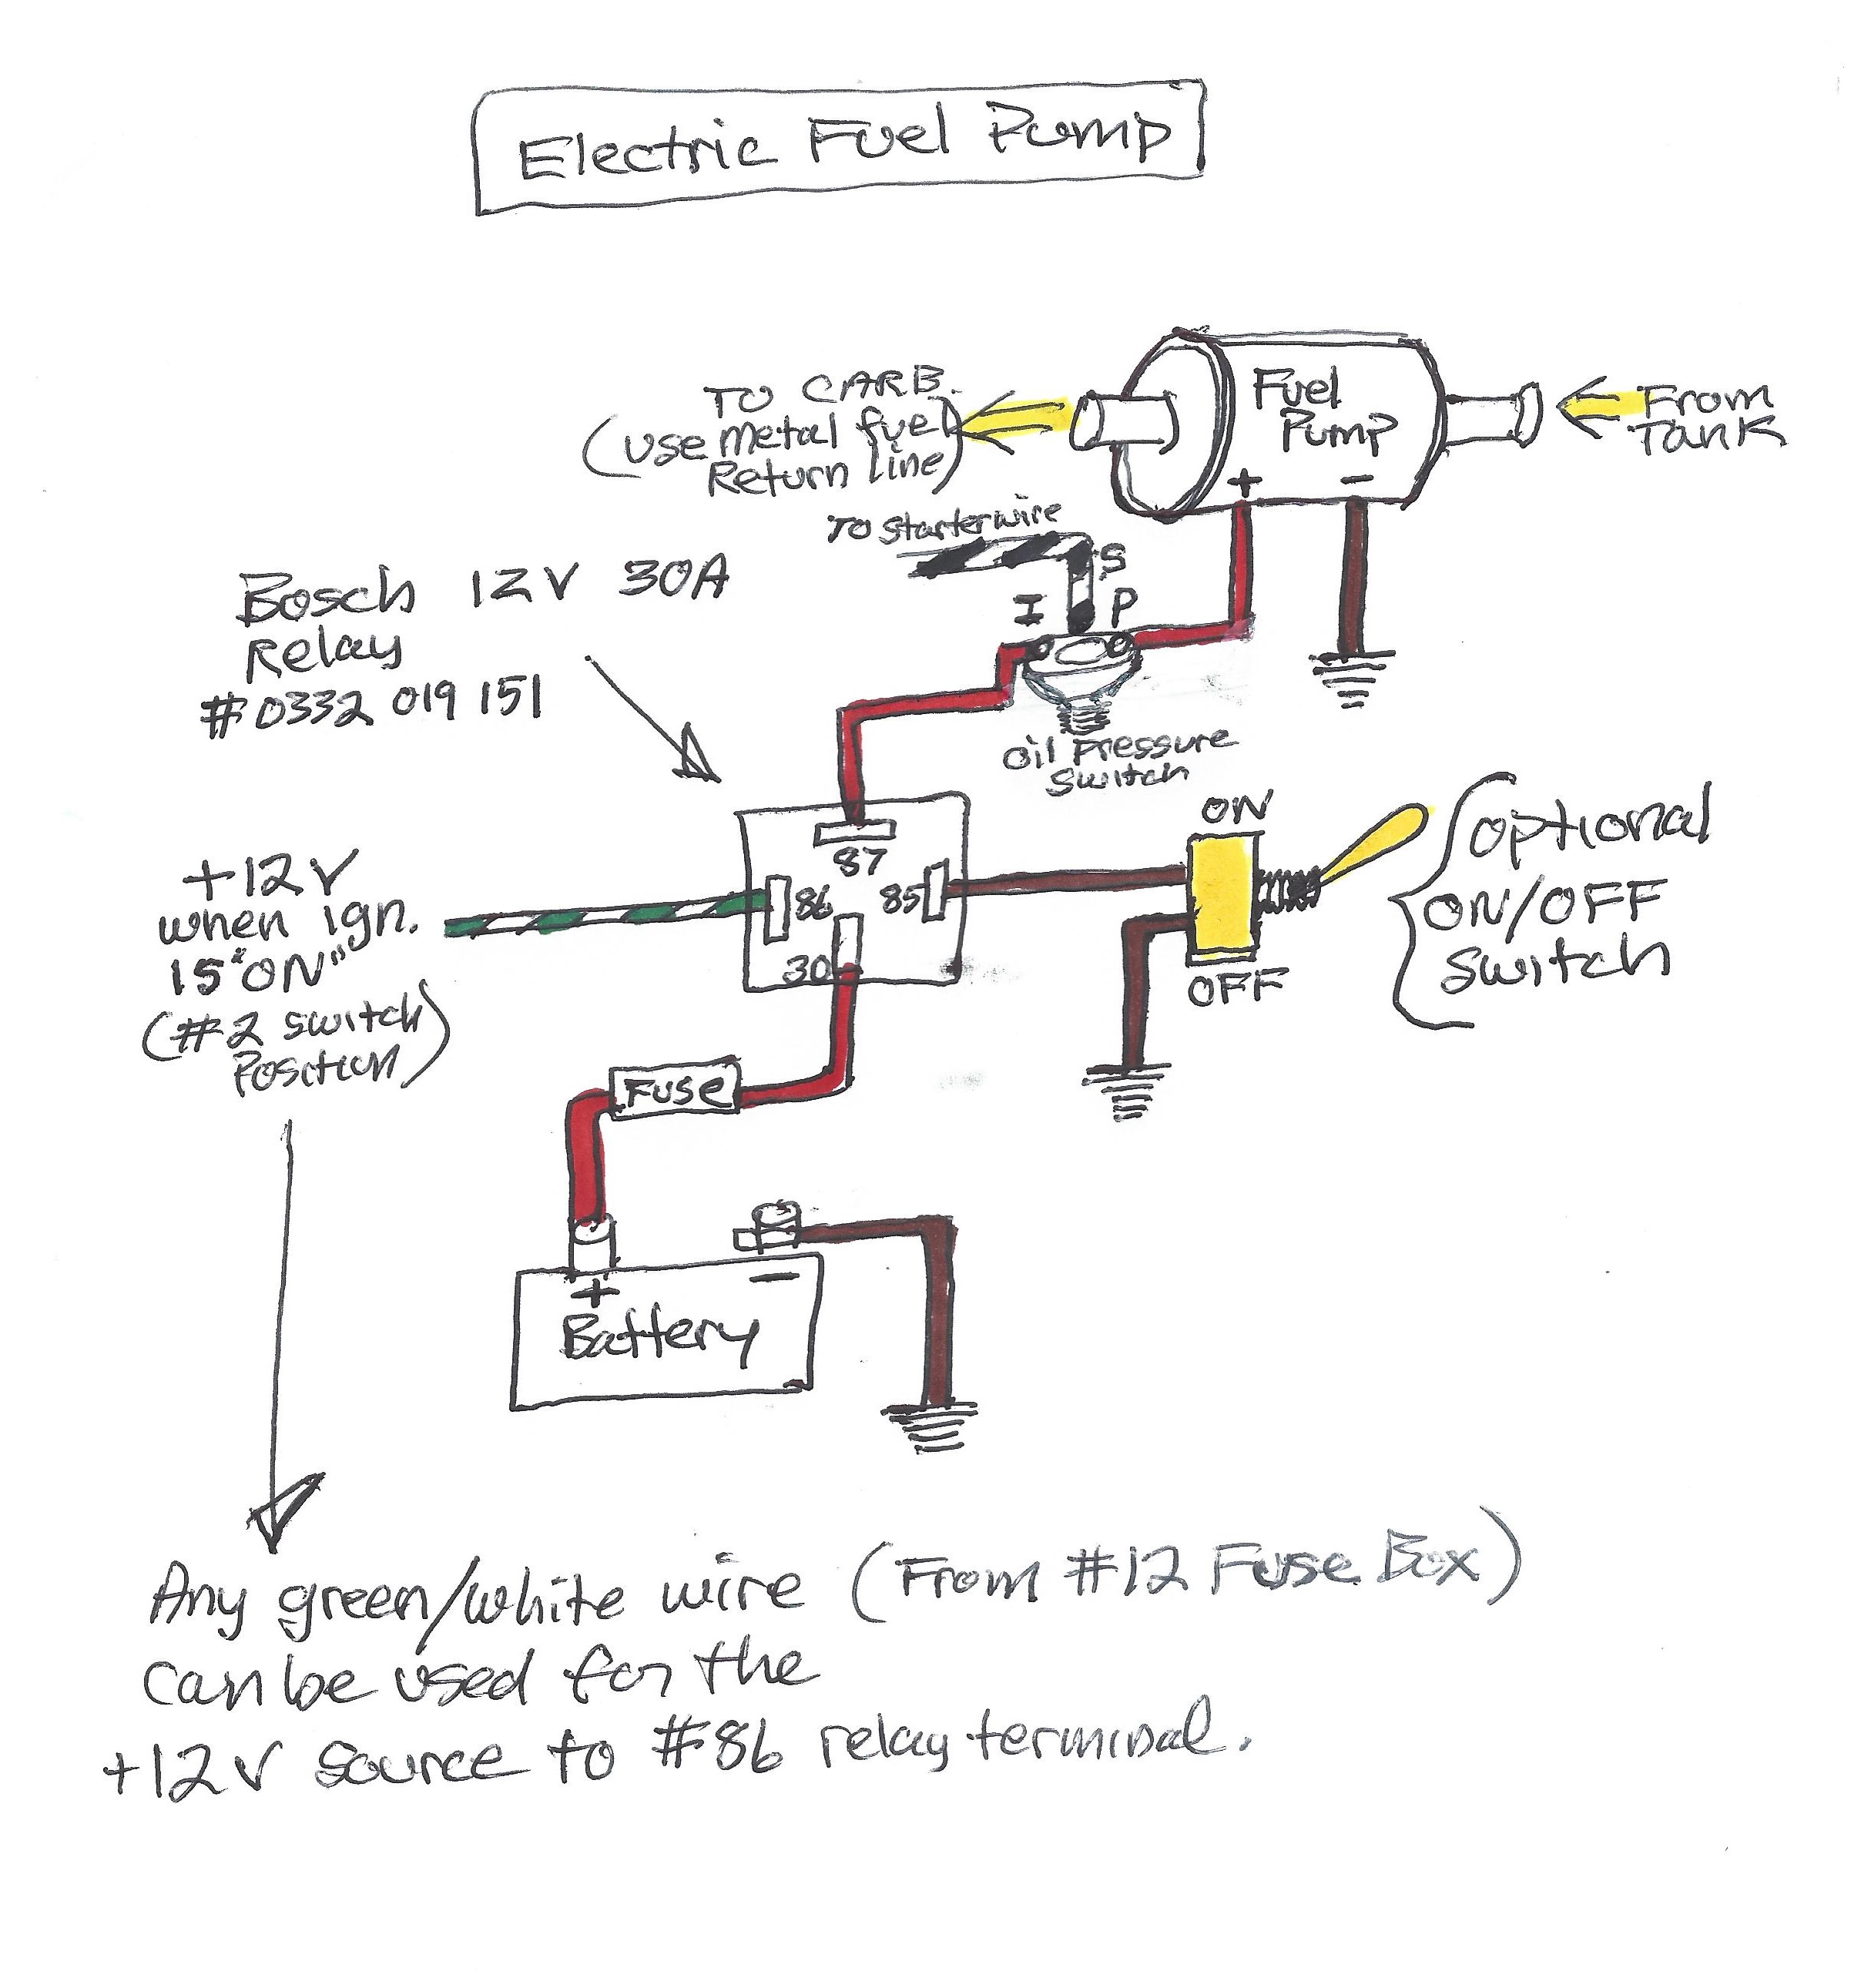 Electric Fuel Pump
TO CARB.
(use metal fuel
Return line)
Fuel
Pump
+
-
From
Tank
TO starter wire
S
I
P
Oil Pressure
Switch
Bosch 12V 30A
Relay
#0332 019 151
87
86
85
30
ON
OFF
Optional
ON/OFF
Switch
+12V
when ign.
15"ON"
(#2 switch
Position)
Fuse
+
-
Battery
Any green/white wire (From #12 Fuse Box)
can be used for the
+12V source to #86 relay terminal.